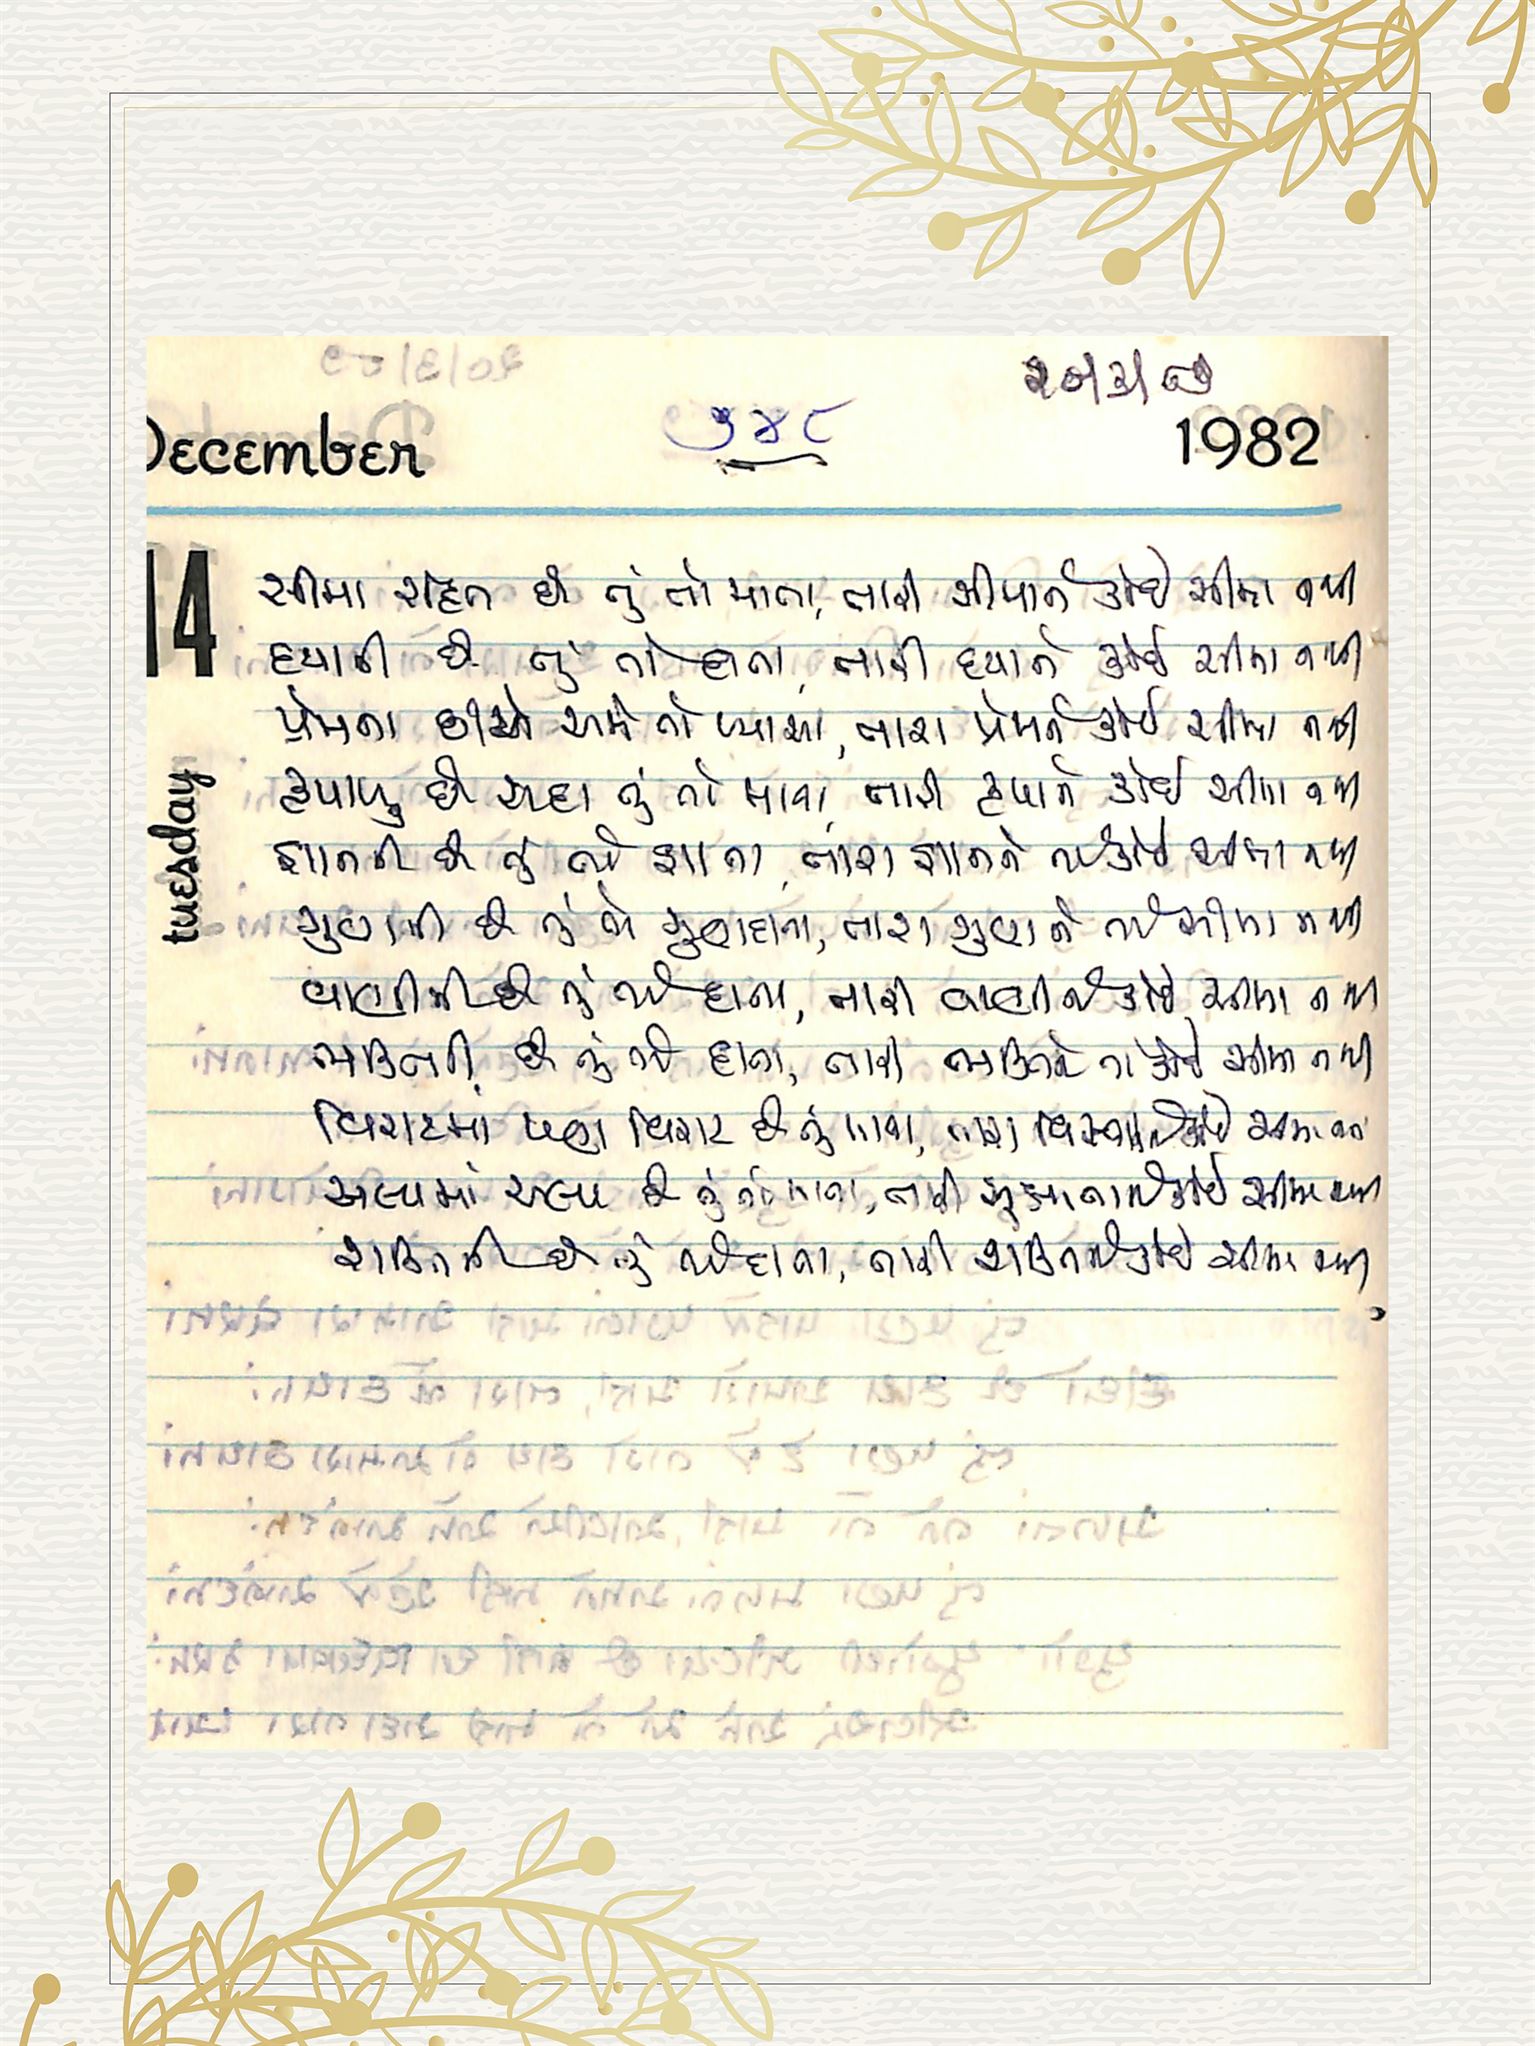 December
૭૪૮
1982
14
tuesday
સીમા રહિત છે તું તો માતા, તારી સીમાને કોઈ સીમા નથી
દયાની છે તું તો દાતા, તારી દયાને કોઈ સીમા નથી
પ્રેમના છીએ અમે તો પ્યાસા, તારા પ્રેમને કોઈ સીમા નથી
કૃપાળુ છે સદા તું તો માતા, તારી કૃપાને કોઈ સીમા નથી
જ્ઞાનની છે તું તો જ્ઞાતા, તારા જ્ઞાનને તો કોઈ સીમા નથી
ગુણની છે તું તો ગુણદાતા, તારા ગુણને તો સીમા નથી
વાણીની છે તું તો દાતા, તારી વાણીને કોઈ સીમા નથી
ભક્તિની છે તું તો દાતા, તારી ભક્તિને તો કોઈ સીમા નથી
વિરાટમાં પણ વિરાટ છે તું માતા, તારા કોઈ સીમા નથી
અલ્પમાં અલ્પ છે તું તો માતા, તારી સૂક્ષ્મતાને કોઈ સીમા નથી
શક્તિની છે તું તો દાતા, તારી શક્તિને કોઈ સીમા નથી